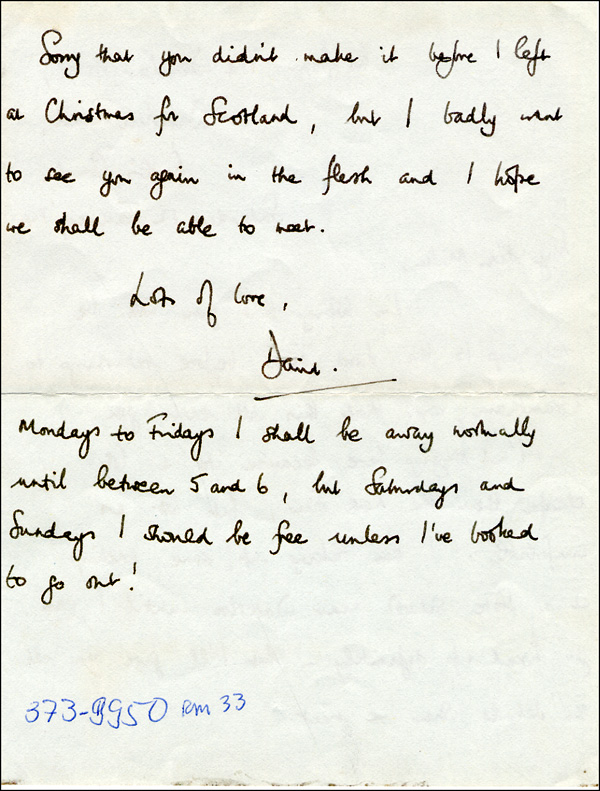 Sorry that you didn't make it before I left
at Christmas for Scotland, but I badly want
to see you again in the flesh and I hope
we shall be able to meet.
Lots of love,
David.
Mondays to Fridays I shall be away normally
until between 5 and 6, but Saturdays and
Sundays I should be free unless I've booked
to go out!
373-9950 Rm 33